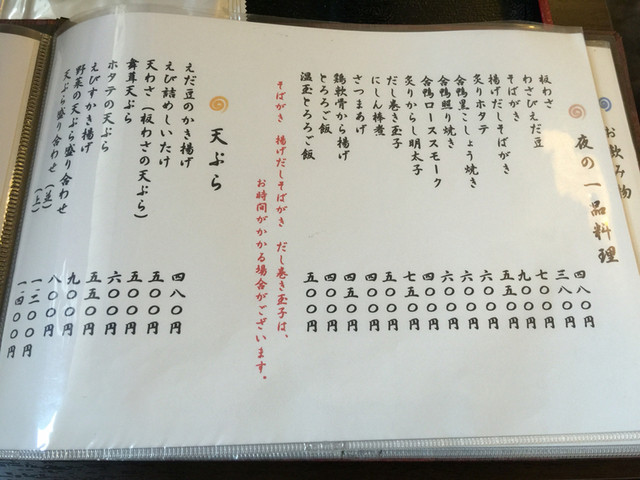 お飲み物
夜の一品料理
板わさ 四八〇円
わさびえだ豆 三八〇円
そばがき 七〇〇円
揚げだしそばがき 九〇〇円
炙りホタテ 五五〇円
合鴨黒こしょう焼き 六〇〇円
合鴨照り焼き 六〇〇円
合鴨ローススモーク 六〇〇円
炙りからし明太子 四〇〇円
だし巻き玉子 七五〇円
にしん棒煮 五〇〇円
さつまあげ 四〇〇円
鶏軟骨から揚げ 四五〇円
とろろご飯 四〇〇円
温玉とろろご飯 五〇〇円
そばがき 揚げだしそばがき だし巻き玉子は、
お時間がかかる場合がございます。
天ぷら
えだ豆のかき揚げ 四八〇円
えび詰めしいたけ 五〇〇円
天わさ(板わさの天ぷら) 五〇〇円
舞茸天ぷら 六〇〇円
ホタテの天ぷら 五五〇円
えびすかき揚げ 九〇〇円
野菜の天ぷら盛り合わせ 八〇〇円
天ぷら盛り合わせ (並) 一、二〇〇円
(上) 一、四〇〇円